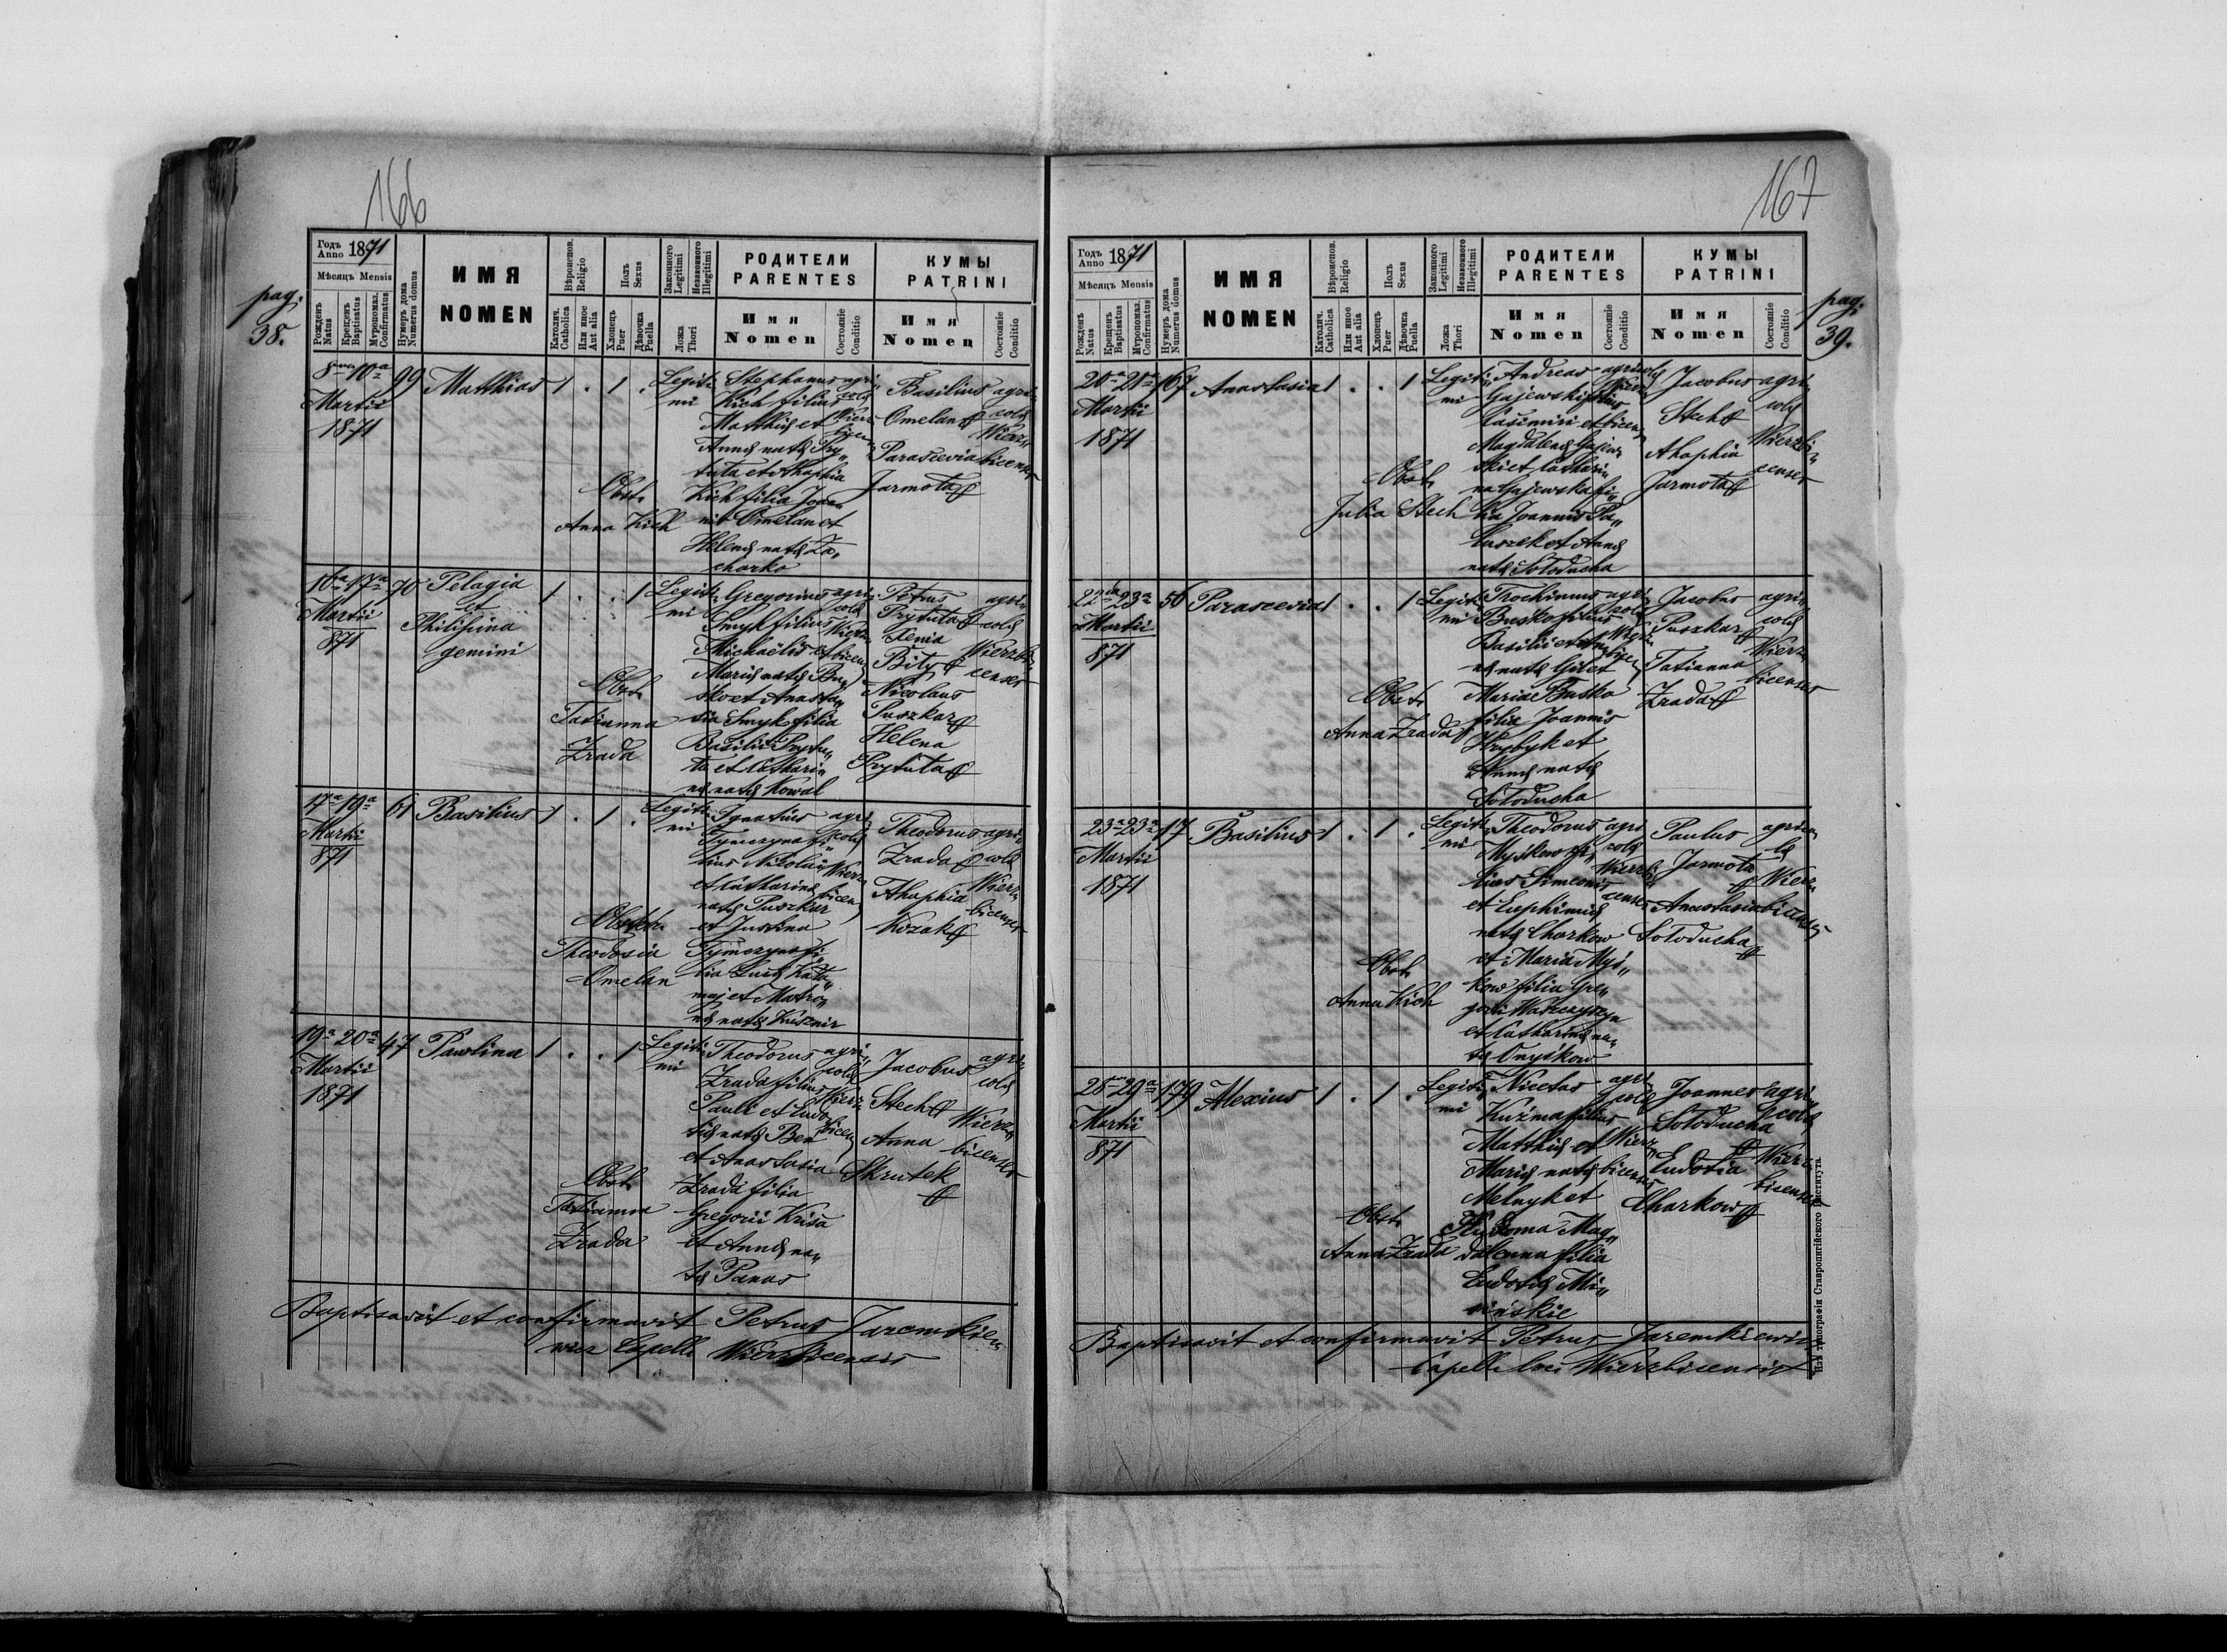 166
pag.
38.
Годъ
Anno 1871
Мѣсяцъ Mensis
Рожденъ
Natus
Крещенъ
Baptisatus
Мѵропомаз.
Confirmatus
Нумеръ дома
Numerus domus
ИМЯ
NOMEN
Вѣроиспов.
Religio
Католич.
Catholica
Или иное
Aut alia
Полъ
Sexus
Хлопецъ
Puer
Дѣвочка
Puella
Законного
Legitimi
Незаконного
Illegitimi
Ложа
Thori
РОДИТЕЛИ
PARENTES
Имя
Nomen
Состояніе
Conditio
КУМЫ
PATRINI
Имя
Nomen
Состояніе
Conditio
8 10ª
Martii
1871
99
Matthias
1 . 1 .
Legiti„
mi
Obst.
Anna Kich
Stephanus
Kich filius
Matthiæ et
Annæ natæ Pry„
tuta et Ahaphia
Kich filia Joan„
nis Omelan et
Helenæ natæ Za„
charko
agri„
colæ
Wierz„
bicen„
Basilius
Omelan
Parascevia
Jarmota
agri„
colæ
Wierz„
bicenses
16ª 17ª
Martii
871
70
Pelagia
et
Philipina
gemini
1 . . 1
Legiti„
mi
Obst.
Tatianna
Zrada
Gregorius
Smyk filius
Michaëlis et
Mariæ natæ Bu„
sko et Anasta„
sia Smyk filia
Basilii Prytu„
ta et Cathari„
næ natæ Kowal
agri„
colæ
Wierz„
bicen„
Petrus
Prytuta
Xenia
Bity
Nicolaus
Puszkar
Helena
Prytuta
agri„
colæ
Wierzbi„
censes
17ª 19ª
Martii
871
61
Basilius
1 . 1 .
Legiti„
mi
Obst.
Theodosia
Omelan
Ignatius
Tymczyna fi„
lius Nicolai
et Catharinæ
natæ Puszkar
et Justina
Tymczyna fi„
lia Lucæ Kata„
maj et Matro„
næ natæ Kusznir
agri„
colæ
Wierz„
bicen„
Theodorus
Zrada
Ahaphia
Kozak
agri„
colæ
Wierz„
bicenses
19ª 20ª
Martii
1871
47
Pawlina
1 . . 1
Legiti„
mi
Obst.
Tatianna
Zrada
Theodorus
Zrada filius
Pauli et Eudo„
tiæ natæ Ben
et Anastasia
Zrada filia
Gregorii Krisa
et Annæ na„
tæ Panas
agri„
colæ
Wierz„
bicen„
Jacobus
Stech
Anna
Skrutek
agri„
colæ
Wierz„
bicenses
Baptisavit et confirmavit Petrus Jaremkie„
wicz Capell. Wierzbicensis
167
pag.
39.
Годъ
Anno 1871
Мѣсяцъ Mensis
Рожденъ
Natus
Крещенъ
Baptisatus
Мѵропомаз.
Confirmatus
Нумеръ дома
Numerus domus
ИМЯ
NOMEN
Вѣроиспов.
Religio
Католич.
Catholica
Или иное
Aut alia
Полъ
Sexus
Хлопецъ
Puer
Дѣвочка
Puella
Законного
Legitimi
Незаконного
Illegitimi
Ложа
Thori
РОДИТЕЛИ
PARENTES
Имя
Nomen
Состояніе
Conditio
КУМЫ
PATRINI
Имя
Nomen
Состояніе
Conditio
20ª 21ª
Martii
1871
167
Anastasia
1 . . 1
Legiti„
mi
Obst.
Julia Stech
Andreas
Gajewski filius
Casimiri et
Magdalenæ Gajew„
ski et Cathari„
na Gajewska fi„
lia Joannis Pa„
luszek et Annæ
natæ Sołoducha
agricolæ
Wierz„
bicen„
Jacobus
Stech
Ahaphia
Jarmota
agri„
colæ
Wierzbi„
censes
22 23ª
Martii
871
56
Parascevia
1 . . 1
Legiti„
mi
Obst.
Anna Zrada
Trochimus
Busko filius
Basilii et An„
næ natæ Gil et
Maria Busko
filia Joannis
Hrybyk et
Annæ natæ
Sołoducha
agri„
colæ
Wierz„
bicen„
Jacobus
Puszkar
Tatianna
Zrada
agri„
colæ
Wierz„
bicenses
23ª 23ª
Martii
1871
17
Basilius
1 . 1 .
Legiti„
mi
Obst.
Anna Kich
Theodorus
Myśkow fi„
lius Simeonis
et Euphimiæ
natæ Charkow
et Maria Myś„
kow filia Gre„
gorii Waszczyszyn
et Catharinæ na„
tæ Onyśkow
agri
colæ
Wierzbi„
censes
Paulus
Jarmota
Anastasia
Sołoducha
agrico„
læ
Wierz„
bicenses
28 29ª
Martii
871
179
Alexius
1 . 1 .
Legiti„
mi
Obst.
Anna Zrada
Nicetas
Kuźma filius
Matthiæ et
Mariæ natæ
Melnyk et
Mag„
dalenna filia
Eudotiæ Mi„
ińskie
agri„
colæ
Wierz„
bicenses
Joannes
Sołoducha
Eudotia
Charkow
agri„
colæ
Wierz„
bicenses
Baptisavit et confirmavit Petrus Jaremkiewicz
Capell. loci Wierzbicensis
Изъ типографіи Ставропигійского Института